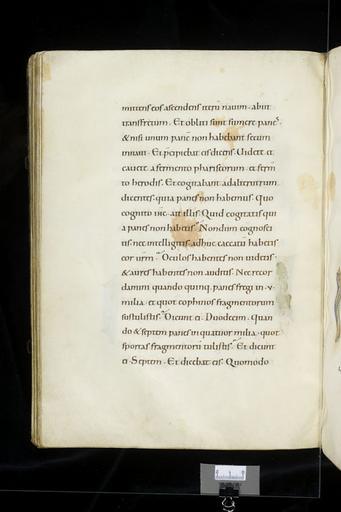 mittens eos ascendens iterū navim · abiit
transfretum · Et obliti sunt sumere panes ·
& nisi unum panē non habebant secum
innavi · Et p̄cipiebat eis dicens · Videte et
cavete a fermento phariseorum · et ferm̄
to herodis · Et cogitabant adalterutrum
dicentes · quia panes non habemus · Quo
cognito ihc · ait illis · Quid cogitatis quia
a panes non habetis · Nondum cognosci
tis nec intelligitis adhuc caecatū habetis
cor urm̄ · Oculos habentes non videtis ·
& aures habentes non auditis · Nec recor
damini quando quinq · panes fregi in · v ·
milia · et quot cophinos fragmentorum
sustulistis · Dicunt ei · Duodecim · Quan
do & septem panes in quattuor milia · quot
sportas fragmentorū tulistis · Et dicunt
ei · Septem · Et dicebat eis · Quomodo